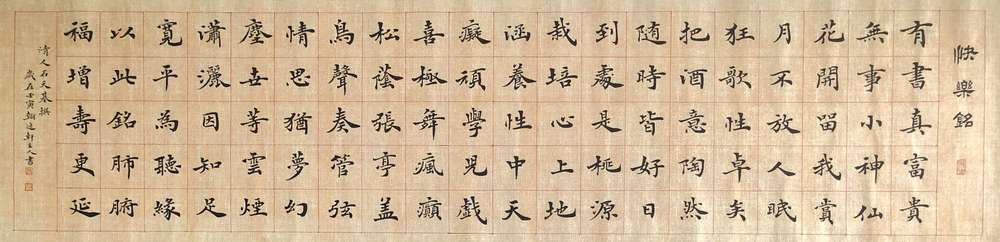 快樂銘
有書真富貴
無事小神仙
花開留我賞
月不放人眠
狂歌性卓矣
把酒意陶然
随時皆好日
到處是桃源
栽培心上地
涵養性中天
癡頑學兒戲
喜極舞瘋癲
松蔭張亭盖
鳥聲奏管弦
情思猶夢幻
塵世等雲煙
瀟灑因知足
寬平為聽緣
以此銘肺腑
福增壽更延
清人石天基撰
歲在壬寅翰逸軒主人書